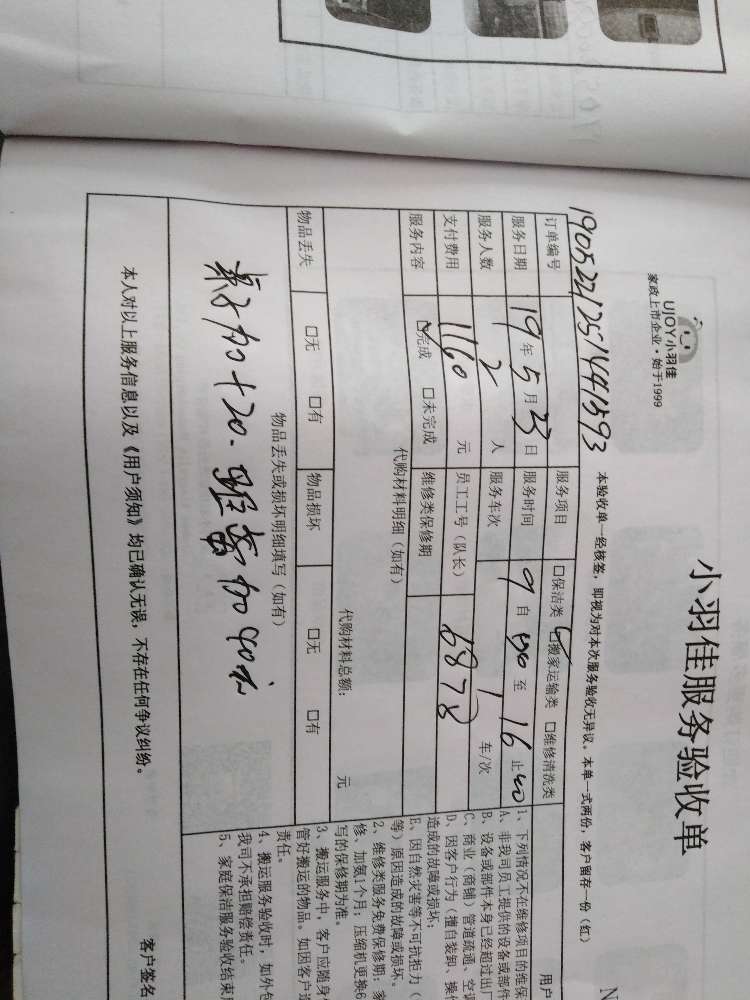 UJOY小羽佳
家政上市企业·始于1999
小羽佳服务验收单
本验收单一经核签，即视为对本次服务验收无异议。本单一式两份，客户留存一份（红）
订单编号 190522125144 服务项目 □保洁类 ☑搬家运输类 □维修清洗类
服务日期 19年5月23日 服务时间 9自 至16止
服务人数 2人 服务车次 1车/次
支付费用 1160元 员工工号（队长） 6878
服务内容 ☑完成 □未完成 维修类保修期
代购材料明细（如有）
代购材料总额： 元
物品丢失 □无 □有 物品损坏 □无 □有
物品丢失或损坏明细填写（如有）
加40元
本人对以上服务信息以及《用户须知》均已确认无误，不存在任何争议纠纷。
客户签名
用户
1、下列情况不在维修项目的维保
A、非我司员工提供的设备或部件
B、设备或部件本身已经超过出厂
C、商业（商铺）管道疏通、空调
D、因客户行为（擅自装卸、操作
造成的故障或损坏；
E、因自然灾害等不可抗拒力（
等）原因造成的故障或损坏。
2、维修类服务免费保修期：家
修、加氨1个月；压缩机更换6
写的保修期为准。
3、搬运服务中，客户应随身
管好搬运的物品。如因客户
责任。
4、搬运服务验收时，如外包
我司不承担赔偿责任。
5、家庭保洁服务验收结束
N